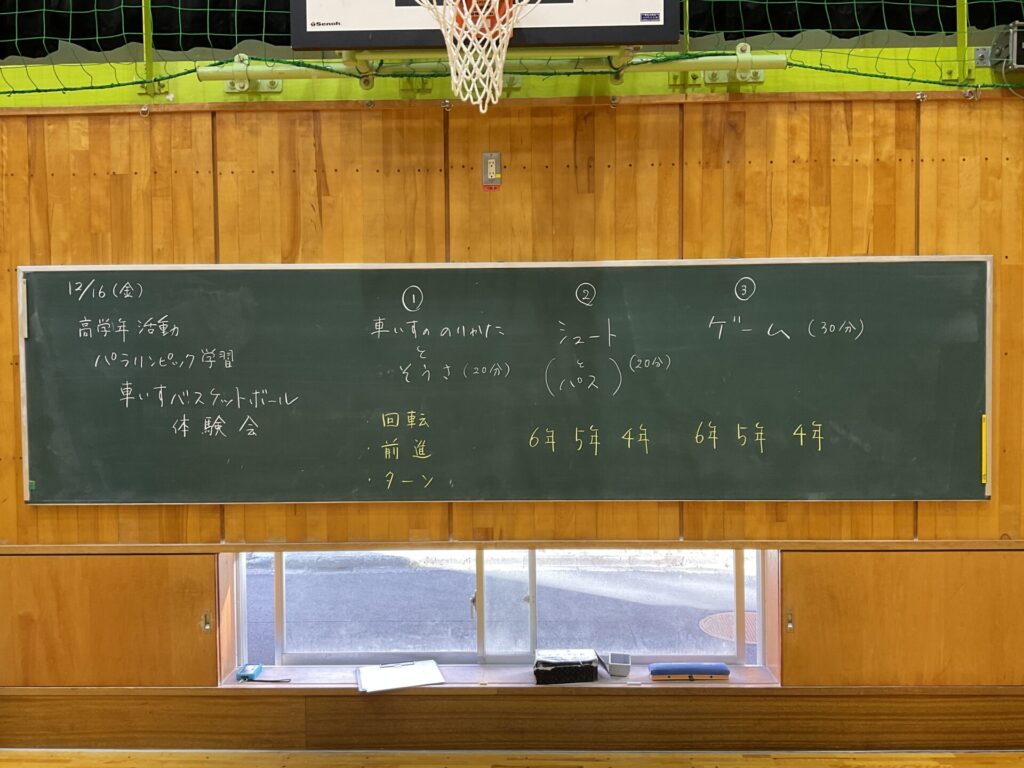 Senoh
12/16(金)
高学年活動
パラリンピック学習
車いすバスケットボール
体験会
①
車いすののりかた
と
そうさ(20分)
・回転
・前進
・ターン
②
シュート
(と
パス)
(20分)
6年 5年 4年
③
ゲーム (30分)
6年 5年 4年